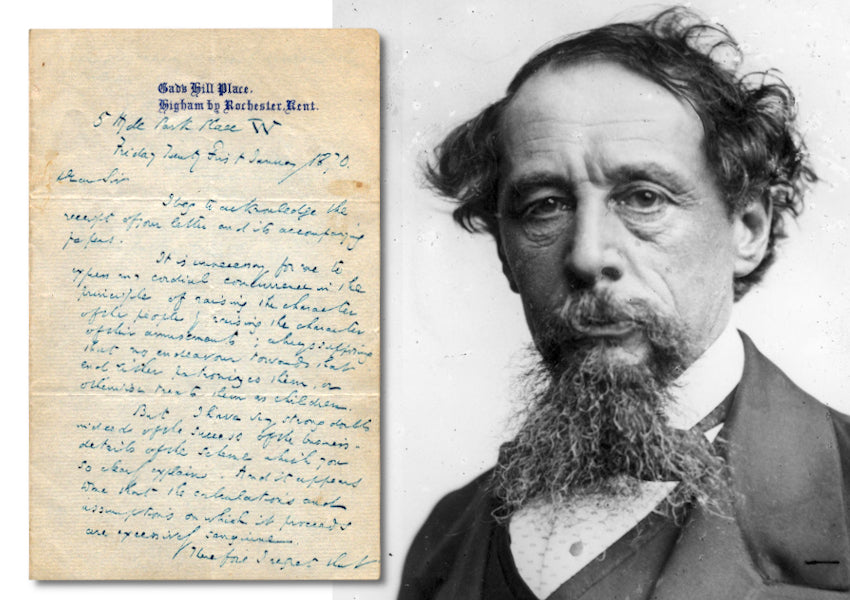 Gad's Hill Place.
Higham by Rochester, Kent.
5 Hyde Park Place W
Friday Twenty First January 1870.
Dear Sir
I beg to acknowledge the
receipt of your letter and its accompanying
papers.
It is unnecessary for me to
express my cordial concurrence in the
principle of raising the character
of the people by raising the character
of their amusements; always supposing
that no endeavour towards that
end either patronizes them, or
otherwise treats them as children.
But, I have very strong doubts
indeed of the success of the business-
details of the scheme which you
so clearly explain. And it appears
to me that the calculations and
assumptions on which it proceeds
are excessively sanguine.
Therefore I regret that